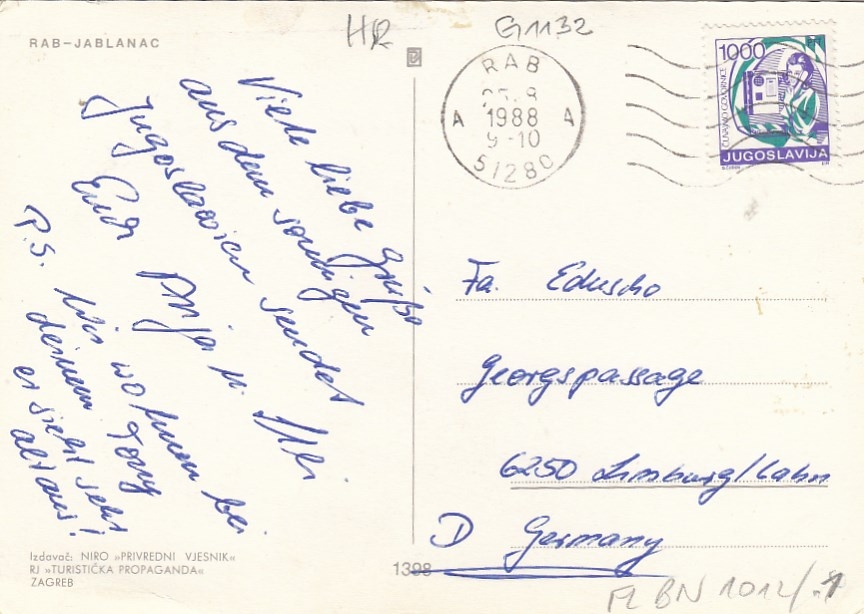 HR
G1132
RAB-JABLANAC
RAB
1988
9-10
A A
51280
1000
ČUVAJMO GOVORNICE
JUGOSLAVIJA
Viele liebe Grüße
aus dem sonnigen
Jugoslawien sendet
Euch Anja u. Uli
P.S. Wir wohnen bei
deinem Tony
er sieht sehr
alt aus!
Fa. Eduscho
Georgspassage
6250 Limburg/Lahn
D Germany
Izdavač: NIRO »PRIVREDNI VJESNIK«
RJ »TURISTIČKA PROPAGANDA«
ZAGREB
1398
FL BN 1012/